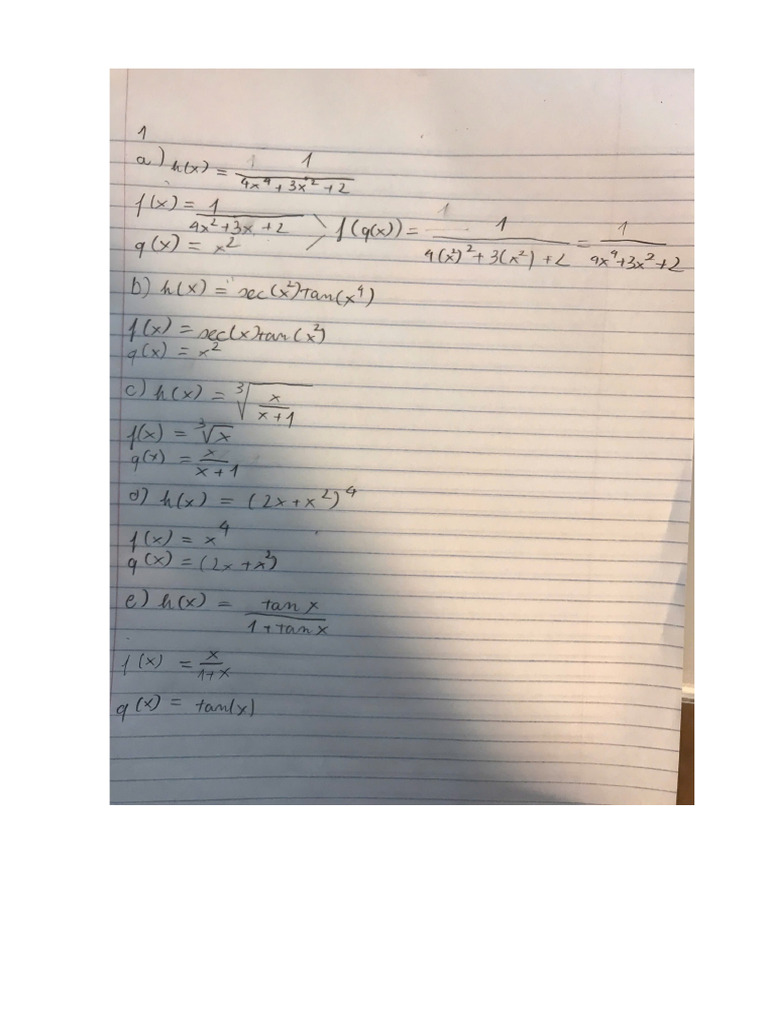 1
a) h(x) = 1/(4x⁴ + 3x² + 2)
f(x) = 1/(4x² + 3x + 2)
g(x) = x²
f(g(x)) = 1/(4(x²)² + 3(x²) + 2) = 1/(4x⁴ + 3x² + 2)
b) h(x) = sec(x²)tan(x⁴)
f(x) = sec(x)tan(x²)
g(x) = x²
c) h(x) = ∛(x/(x+1))
f(x) = ∛x
g(x) = x/(x+1)
d) h(x) = (2x + x²)⁴
f(x) = x⁴
g(x) = (2x + x²)
e) h(x) = tan x/(1 + tan x)
f(x) = x/(1+x)
g(x) = tan(x)